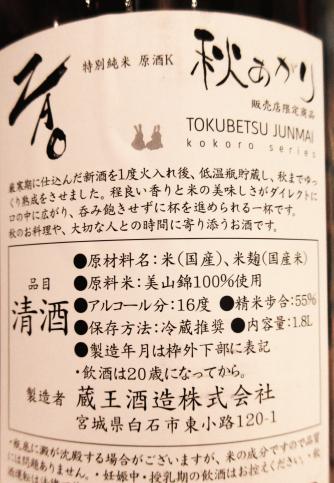 特別純米 原酒K
秋あがり
ZAO
販売店限定商品
TOKUBETSU JUNMAI
kokoro series
厳寒期に仕込んだ新酒を1度火入れ後、低温瓶貯蔵し、秋までゆっ
くり熟成をさせました。程良い香りと米の美味しさがダイレクトに
口の中に広がり、呑み飽きせずに杯を進められる一杯です。
秋のお料理や、大切な人との時間に寄り添うお酒です。
品目
清酒
●原材料名：米(国産)、米麹(国産米)
●原料米：美山錦100%使用
●アルコール分：16度 ●精米歩合：55%
●保存方法：冷蔵推奨 ●内容量：1.8L
●製造年月は枠外下部に表記
・飲酒は20歳になってから。
製造者 蔵王酒造株式会社
宮城県白石市東小路120-1
・瓶底に澱が沈殿する場合がございますが、米の成分ですので品質
には問題ありません。・妊娠中・授乳期の飲酒はお控えください。・飲